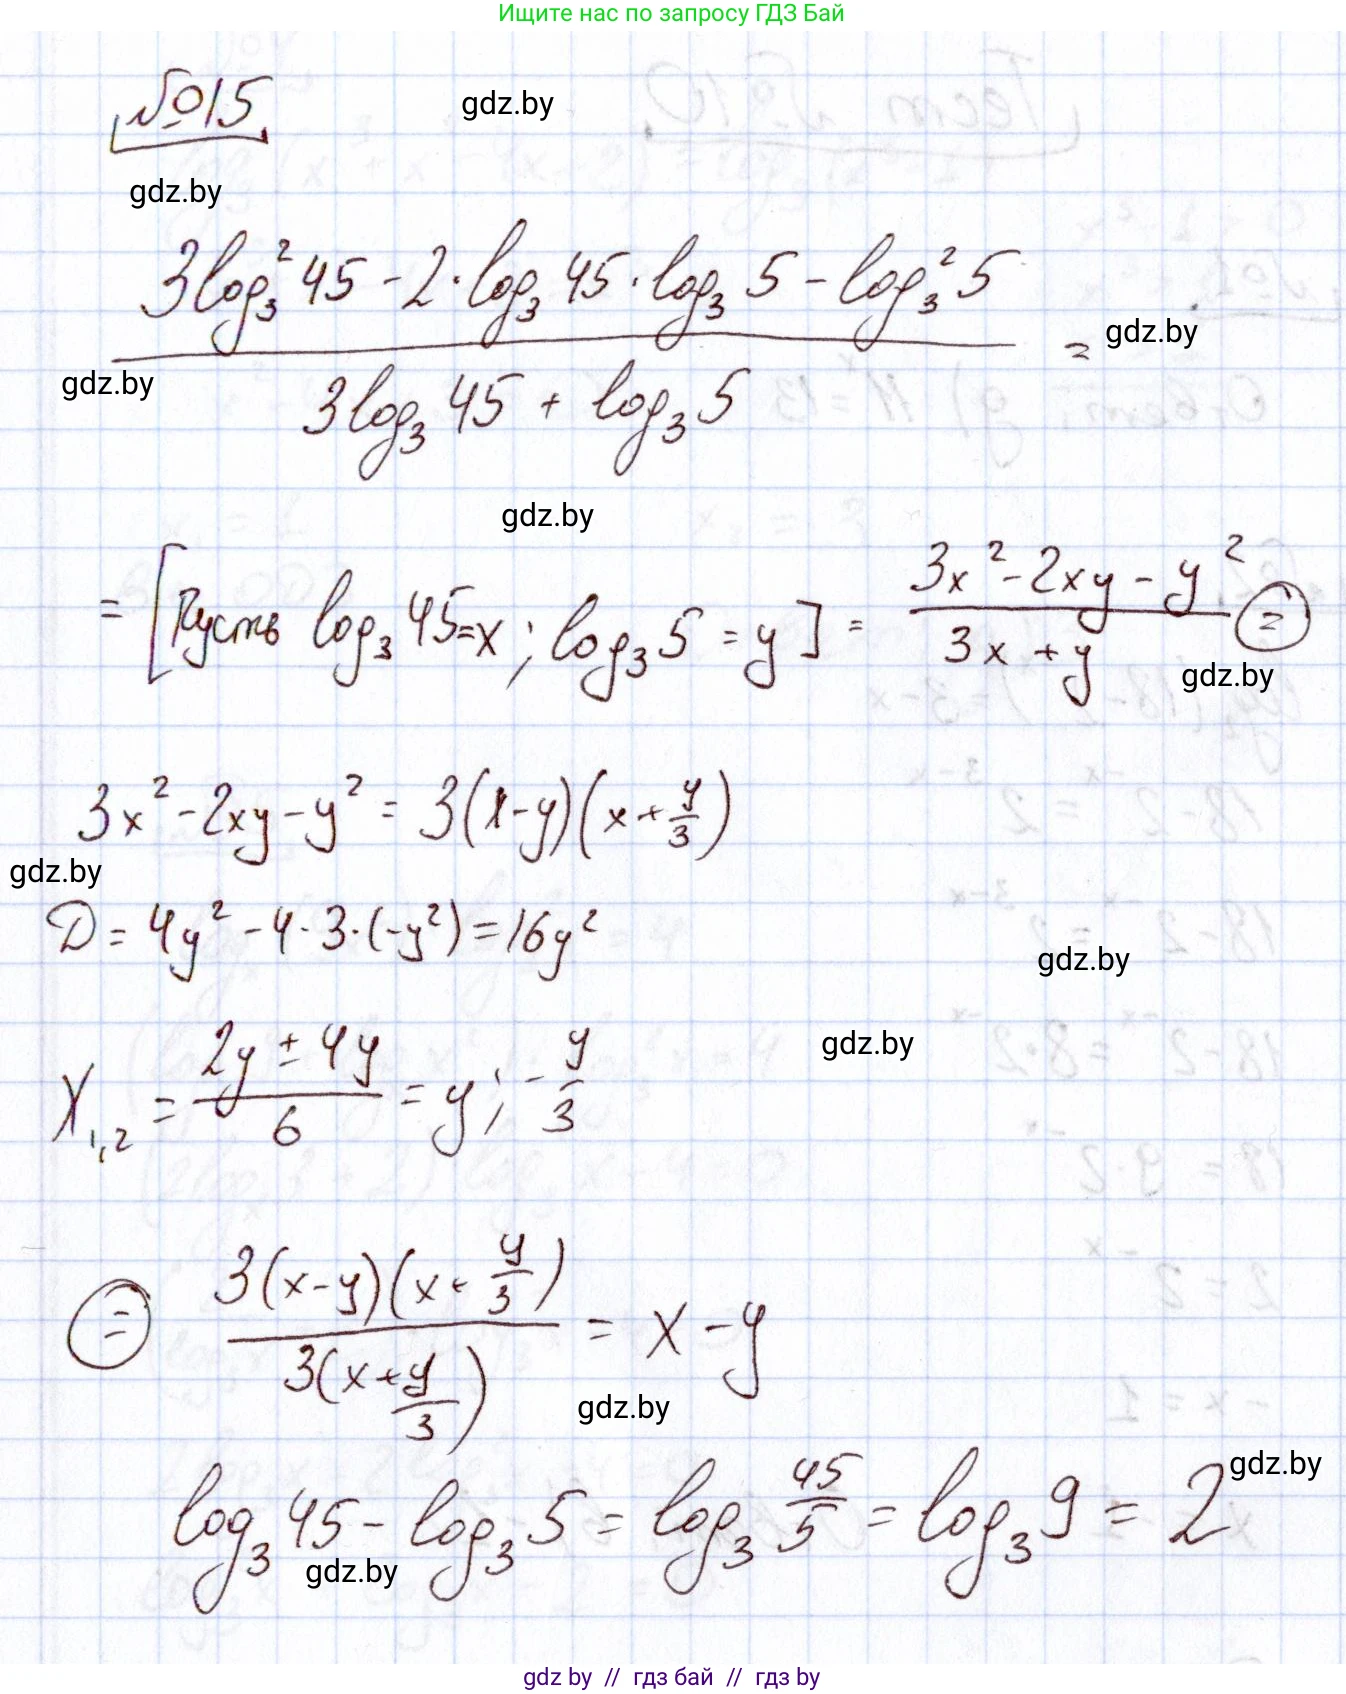 Ищите нас по запросу ГДЗ Бай
№15
gdz.by
gdz.by
3log₃²45 - 2·log₃45·log₃5 - log₃²5
gdz.by
=
gdz.by
3log₃45 + log₃5
gdz.by
= [Пусть log₃45=x; log₃5=y] = (3x²-2xy-y²)/(3x+y) =
gdz.by
3x²-2xy-y² = 3(x-y)(x+y/3)
gdz.by
D = 4y²-4·3·(-y²)=16y²
gdz.by
gdz.by
X₁,₂ = (2y±4y)/6 = y; -y/3
= 3(x-y)(x+y/3)/3(x+y/3) = x-y
gdz.by
gdz.by
log₃45 - log₃5 = log₃45/5 = log₃9 = 2
gdz.by
gdz.by // гдз бай // гдз by